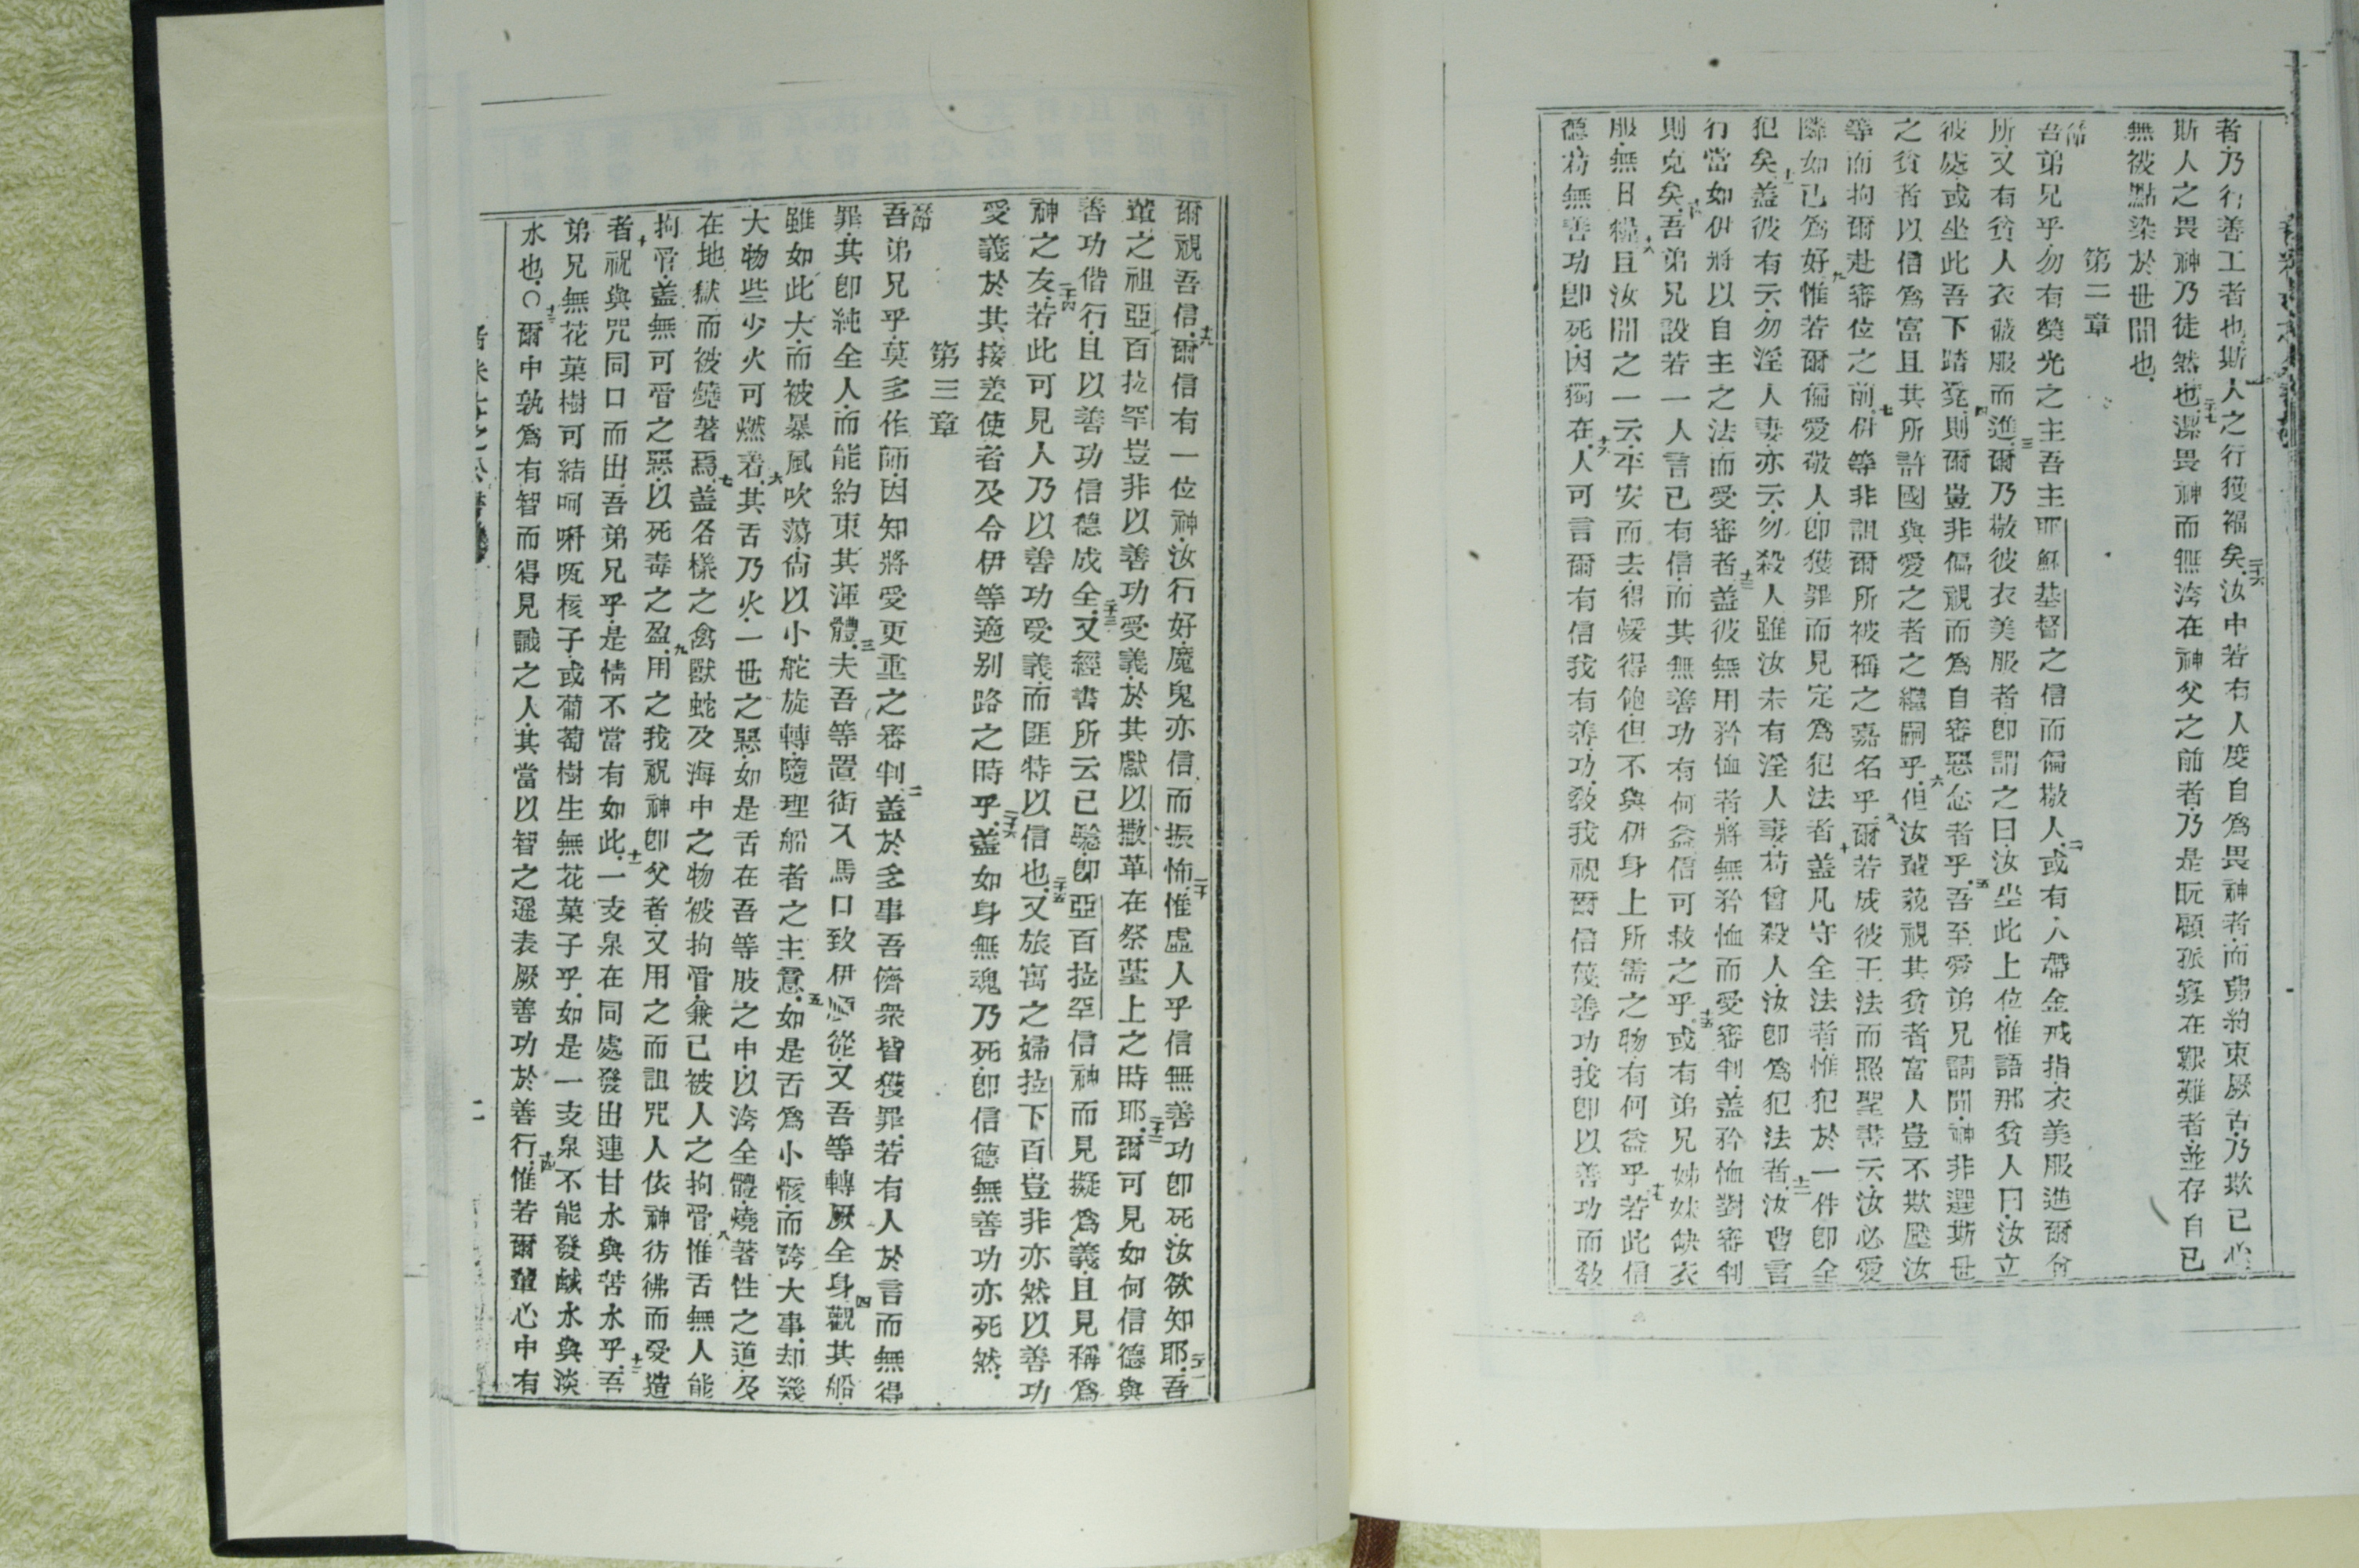 者乃行善工者也斯人之行獲福矣二十六汝中若有人度自爲畏神者而弗約束厥舌乃欺己心
斯人之畏神乃徒然也二十七潔畏神而無洿在神父之前者乃是眷顧孤寡在艱難者並存自己
無被點染於世間也
第二章
一節吾弟兄乎勿有榮光之主吾主耶穌基督之信而偏敬人二或有人帶金戒指衣美服進爾會
所又有貧人衣蔽服而進三爾乃敬彼衣美服者卽謂之曰汝坐此上位惟語那貧人曰汝立
彼處或坐此吾下踏凳四則爾豈非偏視而爲自審惡念者乎五吾至愛弟兄請聞神非選斯世
之貧者以信爲富且其所許國與愛之者之繼嗣乎六但汝輩藐視其貧者富人豈不欺壓汝
等而拘爾赴審位之前七伊等非詛爾所被稱之嘉名乎八爾若成彼王法而照聖書云汝必愛
隣如己爲好九惟若爾偏愛敬人卽獲罪而見定爲犯法者十蓋凡守全法者惟犯於一件卽全
犯矣十一蓋彼有云勿淫人妻亦云勿殺人雖汝未有淫人妻苟曾殺人汝卽爲犯法者十二汝曹言
行當如伊將以自主之法而受審者十三蓋彼無用矜恤者將無矜恤而受審判蓋矜恤對審判
則克矣十四吾弟兄設若一人言已有信而其無善功有何益信可救之乎十五或有弟兄姊妹缺衣
服無日糧十六且汝間之一云平安而去得煖得飽但不與伊身上所需之物有何益乎十七若此信
德若無善功卽死因獨在十八人可言爾有信我有善功敎我視爾信茂善功我卽以善功而敎
爾視吾信十九爾信有一位神汝行好魔鬼亦信而振怖二十惟虛人乎信無善功卽死汝欲知耶二十一吾
輩之祖亞百拉罕豈非以善功受義於其獻以撒革在祭臺上之時耶二十二爾可見如何信德與
善功偕行且以善功信德成全二十三又經書所云已驗卽亞百拉罕信神而見擬爲義且見稱爲
神之友二十四若此可見人乃以善功受義而匪特以信也二十五又旅寓之婦拉下百豈非亦然以善功
受義於其接差使者及令伊等適别路之時乎二十六蓋如身無魂乃死卽信德無善功亦死然
第三章
一節吾弟兄乎莫多作師因知將受更重之審判二蓋於多事吾儕衆皆獲罪若有人於言而無得
罪其卽純全人而能約束其渾體三夫吾等置銜入馬口致伊順從又吾等轉厥全身四觀其船
雖如此大而被暴風吹蕩尙以小舵旋轉隨理船者之主意五如是舌爲小骸而誇大事却幾
大物些少火可燃着六其舌乃火一世之惡如是舌在吾等肢之中以洿全體燒著性之道及
在地獄而彼燒著焉七蓋各樣之禽獸蛇及海中之物被拘管兼已被人之拘管八惟舌無人能
拘管蓋無可管之惡以死毒之盈九用之我祝神卽父者又用之而詛咒人依神彷彿而受造
者十祝與咒同口而出吾弟兄乎是情不當有如此十一一支泉在同處發出連甘水與苦水乎十二吾
弟兄無花菓樹可結呵唎㕽核子或葡萄樹生無花菓子乎如是一支泉不能發鹹水與淡
水也○十三爾中孰爲有智而得見識之人其當以智之遜表厥善功於善行十四惟若爾輩心中有
二